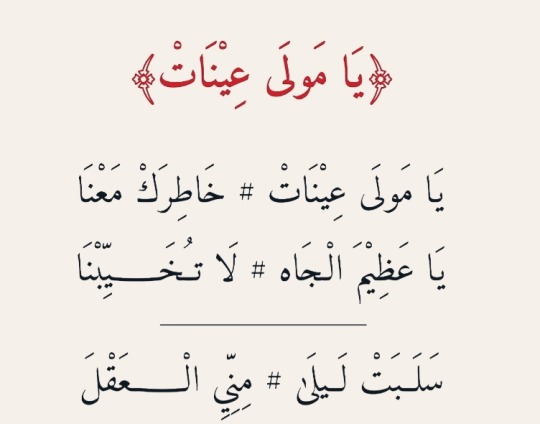 ﴿يَا مَولَى عِيْنَاتْ﴾
يَا مَولَى عِيْنَاتْ # خَاطِرَكْ مَعْنَا
يَا عَظِيْمَ الْجَاه # لَا تُخَـــــيِّبْنَا
سَلَـبَتْ لَـيلَىٰ # مِنِّيِ الْـــــعَقْلَ